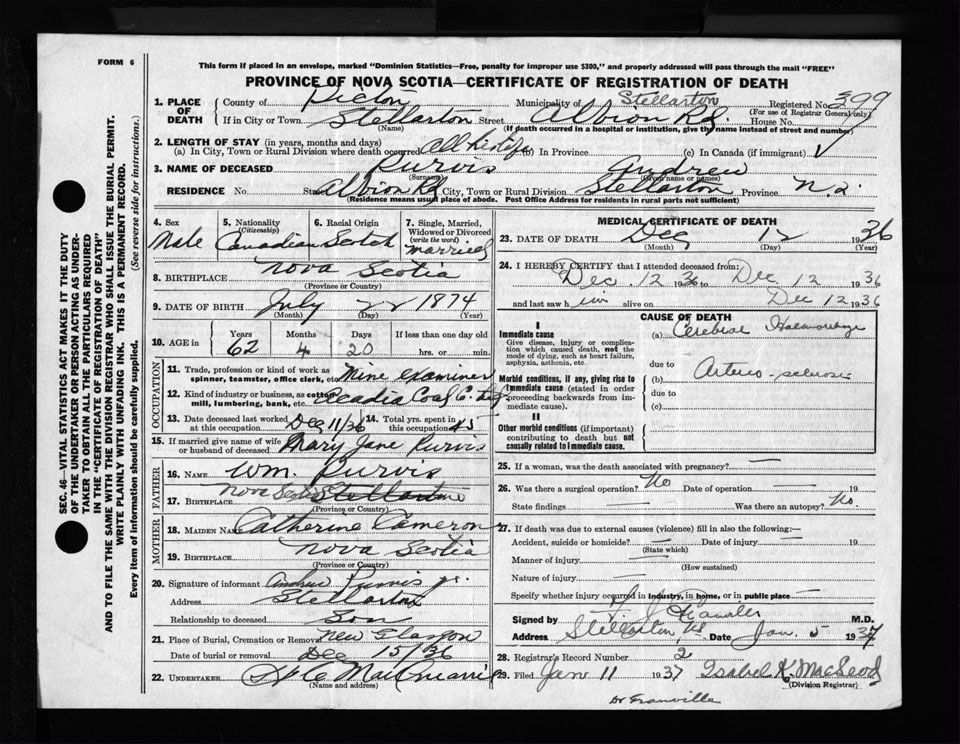 FORM 6
This form if placed in an envelope, marked "Dominion Statistics—Free, penalty for improper use $300," and properly addressed will pass through the mail "FREE"
PROVINCE OF NOVA SCOTIA—CERTIFICATE OF REGISTRATION OF DEATH
SEC. 46—VITAL STATISTICS ACT MAKES IT THE DUTY
OF THE UNDERTAKER OR PERSON ACTING AS UNDER-
TAKER TO OBTAIN ALL THE PARTICULARS REQUIRED
IN THE "CERTIFICATE OF REGISTRATION OF DEATH"
AND TO FILE THE SAME WITH THE DIVISION REGISTRAR WHO SHALL ISSUE THE BURIAL PERMIT.
WRITE PLAINLY WITH UNFADING INK. THIS IS A PERMANENT RECORD.
Every item of information should be carefully supplied. (See reverse side for instructions.)
1. PLACE OF DEATH
County of Pictou Municipality of Stellarton Registered No. 399
(For use of Registrar General only)
If in City or Town Stellarton Street Albion Rd House No.
(Name) (If death occurred in a hospital or institution, give the name instead of street and number)
2. LENGTH OF STAY (in years, months and days)
(a) In City, Town or Rural Division where death occurred all his life (b) In Province (c) In Canada (if immigrant)
3. NAME OF DECEASED Purvis Andrew
(Surname) (Given name or names)
RESIDENCE No. Street Albion Rd City, Town or Rural Division Stellarton Province N.S.
(Residence means usual place of abode. Post Office Address for residents in rural parts not sufficient)
4. Sex Male
5. Nationality (Citizenship) Canadian
6. Racial Origin Scotch
7. Single, Married, Widowed or Divorced (write the word) married
8. BIRTHPLACE Nova Scotia
(Province or Country)
9. DATE OF BIRTH July 22 1874
(Month) (Day) (Year)
10. AGE in Years 62 Months 4 Days 20 If less than one day old hrs. or min.
OCCUPATION
11. Trade, profession or kind of work as spinner, teamster, office clerk, etc. Mine examiner
12. Kind of industry or business, as cotton mill, lumbering, bank, etc. Acadia Coal Co. Ltd
13. Date deceased last worked at this occupation Dec 11/36 14. Total yrs. spent in this occupation 45
15. If married give name of wife or husband of deceased Mary Jane Purvis
FATHER
16. NAME Wm. Purvis
17. BIRTHPLACE Nova Scotia Stellarton
(Province or Country)
MOTHER
18. MAIDEN NAME Catherine Cameron
19. BIRTHPLACE Nova Scotia
(Province or Country)
20. Signature of informant Andrew Purvis jr.
Address Stellarton
Relationship to deceased Son
21. Place of Burial, Cremation or Removal New Glasgow
Date of burial or removal Dec 15/36
22. UNDERTAKER
(Name and address)
MEDICAL CERTIFICATE OF DEATH
23. DATE OF DEATH Dec 12 1936
(Month) (Day) (Year)
24. I HEREBY CERTIFY that I attended deceased from:
Dec. 12 1936 to Dec 12 1936
and last saw him alive on Dec 12 1936
CAUSE OF DEATH
I
Immediate cause
Give disease, injury or complication which caused death, not the mode of dying, such as heart failure, asphyxia, asthenia, etc.
(a) Cerebral Haemorrhage
due to
Morbid conditions, if any, giving rise to immediate cause (stated in order proceeding backwards from immediate cause).
(b) Arterio-sclerosis
due to
(c)
II
Other morbid conditions (if important) contributing to death but not causally related to immediate cause.
25. If a woman, was the death associated with pregnancy? —
26. Was there a surgical operation? No Date of operation — 19
State findings — Was there an autopsy? No.
27. If death was due to external causes (violence) fill in also the following:—
Accident, suicide or homicide? — Date of injury — 19
(State which)
Manner of injury —
(How sustained)
Nature of injury —
Specify whether injury occurred in industry, in home, or in public place —
Signed by M.D.
Address Stellarton NS Date Jan. 5 1937
28. Registrar's Record Number 2
29. Filed Jan 11 1937 Isabel K. MacLeod
(Division Registrar)
Dr Granville